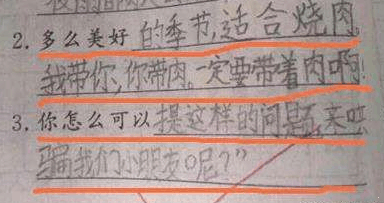 2. 多么美好的季节,适合烧肉。
我带你,你带肉。一定要带着肉啊!
3. 你怎么可以提这样的问题,来哄
骗我们小朋友呢?”